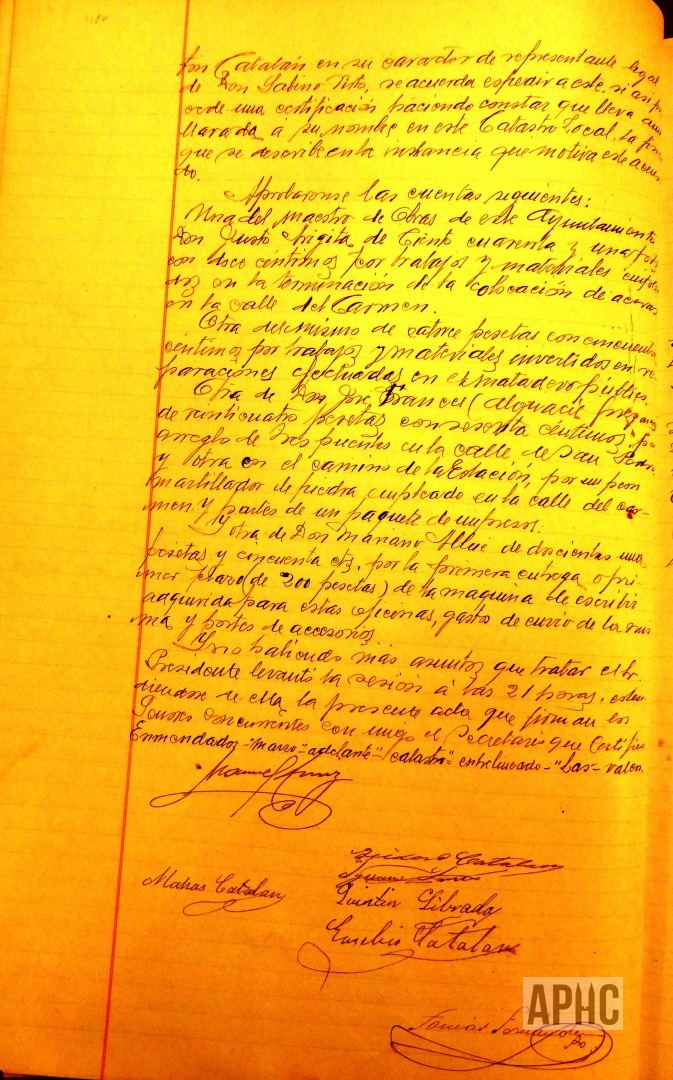 tin Catalán en su caracter de representante legal
de Don Sabino Pinto, se acuerda espedir a este, si asi
de una certificación haciendo constar que lleva
llarada á su nombre en este Catastro Local, la
que se describe en la instancia que motiva este acuer
do.
Aprobaronse las cuentas siguientes:
Una del Maestro de Obras de este Ayuntamiento
Don Justo de Ciento cuarenta y una
con doce centimos por trabajos y materiales
dos en la terminación de la colocación de aceras
en la calle del Carmen.
Otra del mismo de catorce pesetas con cincuenta
centimos por trabajos y materiales invertidos en re
paraciones efectuadas en el matadero público.
Otra de Don José Frances (alguacil
de veinticuatro pesetas con sesenta centimos,
arreglo de tres puentes en la calle de San Pedro
y otra en el camino de la Estación, por un peon
martillador de piedra empleado en la calle del Car-
men y partes de un paquete de impresos.
Y otra de Don Mariano Allué de doscientas una
pesetas y cincuenta cts, por la primera entrega o pri
mer plazo (de 200 pesetas) de la maquina de escribir
adquirida para estas oficinas, gastos de envio de la mis
ma y portes de accesorios.
Y no habiendo más asuntos que tratar el Sr.
Presidente levantó la sesión á las 21 horas, exten
diendose de ella la presente acta que firman los
Señores concurrentes con migo el Secretario que Certifico
Enmendados - "marzo" - "adelante" - "catastro" - entrelineado - "Las" - valen.
Isidoro Catalan
Matias Catalan
Quintin Librada
Eusebio Catalan
APHC
Tomás